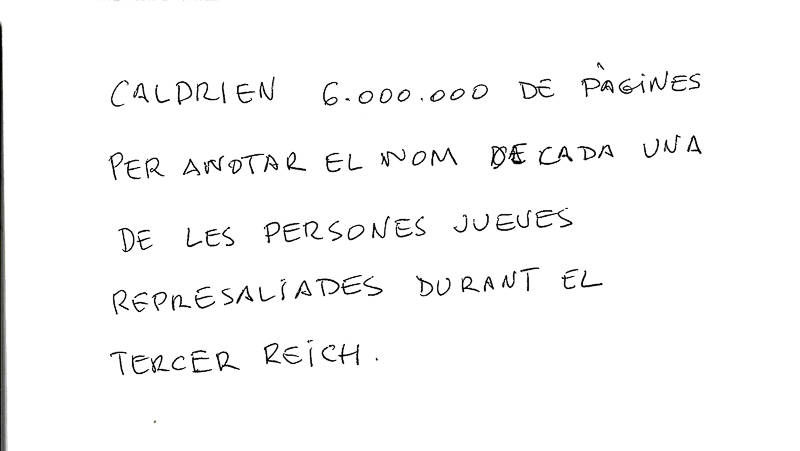 CALDRIEN 6.000.000 DE PÀGINES
PER ANOTAR EL NOM DE CADA UNA
DE LES PERSONES JUEUES
REPRESALIADES DURANT EL
TERCER REICH.